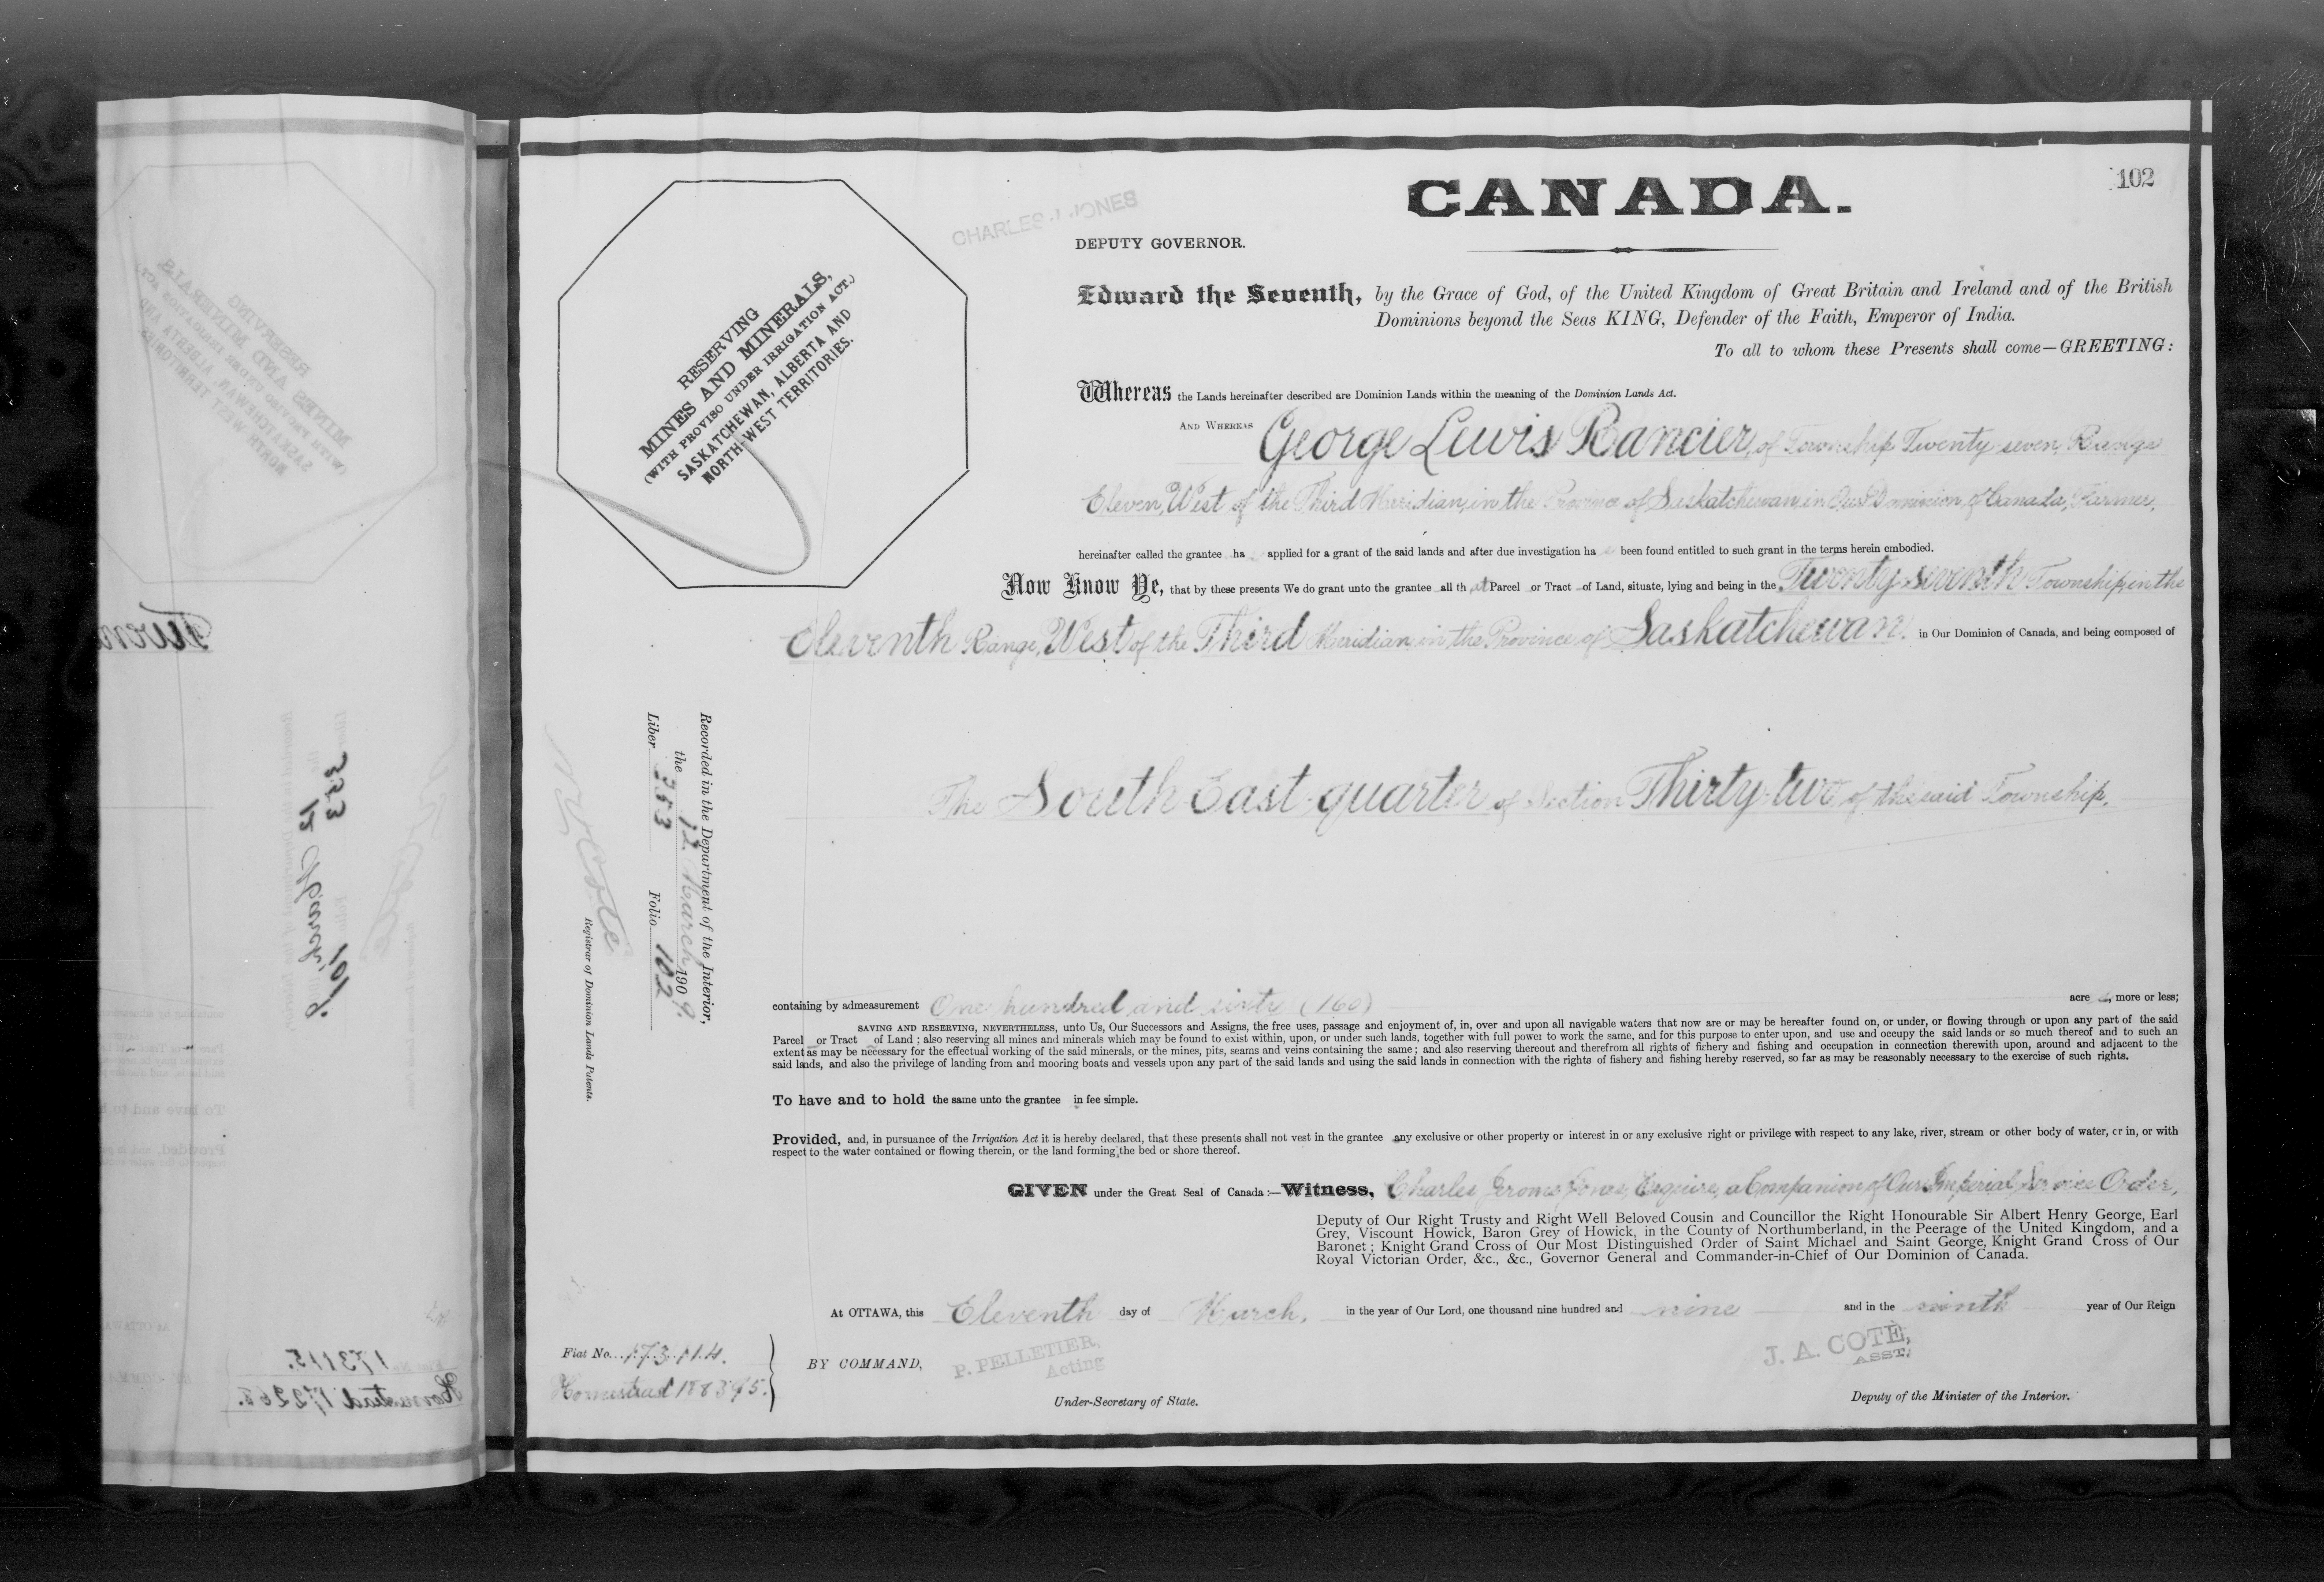 102
CANADA.
CHARLES J. JONES
DEPUTY GOVERNOR.
Edward the Seventh, by the Grace of God, of the United Kingdom of Great Britain and Ireland and of the British
Dominions beyond the Seas KING, Defender of the Faith, Emperor of India.
To all to whom these Presents shall come—GREETING:
RESERVING
MINES AND MINERALS,
(WITH PROVISO UNDER IRRIGATION ACT.)
SASKATCHEWAN, ALBERTA AND
NORTH-WEST TERRITORIES.
Whereas the Lands hereinafter described are Dominion Lands within the meaning of the Dominion Lands Act.
AND WHEREAS George Lewis Rancier, of Township Twenty-seven, Range
Eleven, West of the Third Meridian, in the Province of Saskatchewan, in Our Dominion of Canada, Farmer,
hereinafter called the grantee ha applied for a grant of the said lands and after due investigation ha been found entitled to such grant in the terms herein embodied.
Now Know Ye, that by these presents We do grant unto the grantee all that Parcel or Tract of Land, situate, lying and being in the Twenty-seventh Township, in the
Eleventh Range, West of the Third Meridian, in the Province of Saskatchewan. in Our Dominion of Canada, and being composed of
The South East quarter of Section Thirty-two of the said Township,
Recorded in the Department of the Interior,
the 12 March 1909.
Liber 353 Folio 102
N O Coté
Registrar of Dominion Lands Patents.
containing by admeasurement One hundred and sixty (160) acres, more or less;
SAVING AND RESERVING, NEVERTHELESS, unto Us, Our Successors and Assigns, the free uses, passage and enjoyment of, in, over and upon all navigable waters that now are or may be hereafter found on, or under, or flowing through or upon any part of the said
Parcel or Tract of Land; also reserving all mines and minerals which may be found to exist within, upon, or under such lands, together with full power to work the same, and for this purpose to enter upon, and use and occupy the said lands or so much thereof and to such an
extent as may be necessary for the effectual working of the said minerals, or the mines, pits, seams and veins containing the same; and also reserving thereout and therefrom all rights of fishery and fishing and occupation in connection therewith upon, around and adjacent to the
said lands, and also the privilege of landing from and mooring boats and vessels upon any part of the said lands and using the said lands in connection with the rights of fishery and fishing hereby reserved, so far as may be reasonably necessary to the exercise of such rights.
To have and to hold the same unto the grantee in fee simple.
Provided, and, in pursuance of the Irrigation Act it is hereby declared, that these presents shall not vest in the grantee any exclusive or other property or interest in or any exclusive right or privilege with respect to any lake, river, stream or other body of water, or in, or with
respect to the water contained or flowing therein, or the land forming the bed or shore thereof.
GIVEN under the Great Seal of Canada:—Witness, Charles Jerome Jones, Esquire, a Companion of Our Imperial Service Order,
Deputy of Our Right Trusty and Right Well Beloved Cousin and Councillor the Right Honourable Sir Albert Henry George, Earl
Grey, Viscount Howick, Baron Grey of Howick, in the County of Northumberland, in the Peerage of the United Kingdom, and a
Baronet; Knight Grand Cross of Our Most Distinguished Order of Saint Michael and Saint George, Knight Grand Cross of Our
Royal Victorian Order, &c., &c., Governor General and Commander-in-Chief of Our Dominion of Canada.
At OTTAWA, this Eleventh day of March, in the year of Our Lord, one thousand nine hundred and nine and in the ninth year of Our Reign
Fiat No. 173114.
Homestead 188395.
BY COMMAND,
P. PELLETIER,
Acting
Under-Secretary of State.
J. A. COTÉ,
ASST.
Deputy of the Minister of the Interior.